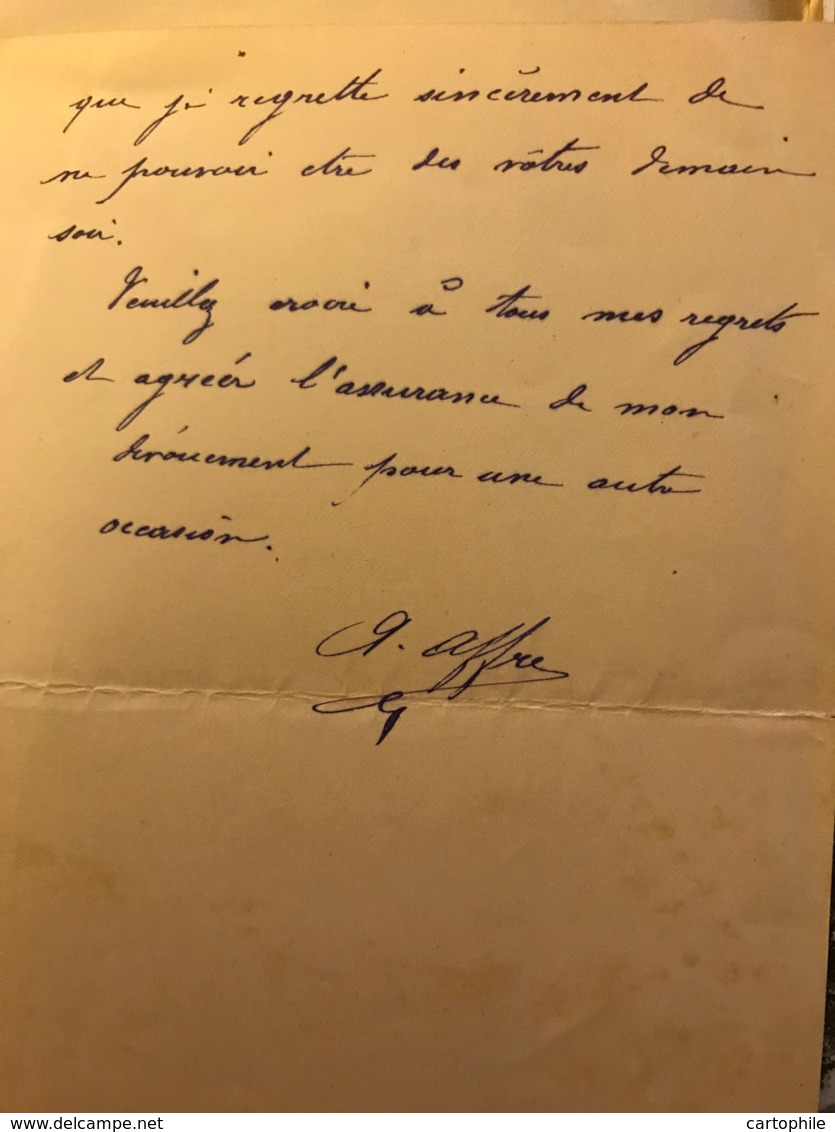 que je regrette sincèrement de
ne pouvoir être des vôtres demain
soir.
Veuillez croire à tous mes regrets
et agréer l'assurance de mon
dévouement pour une autre
occasion.
A. Affre
delcampe.net
cartophile